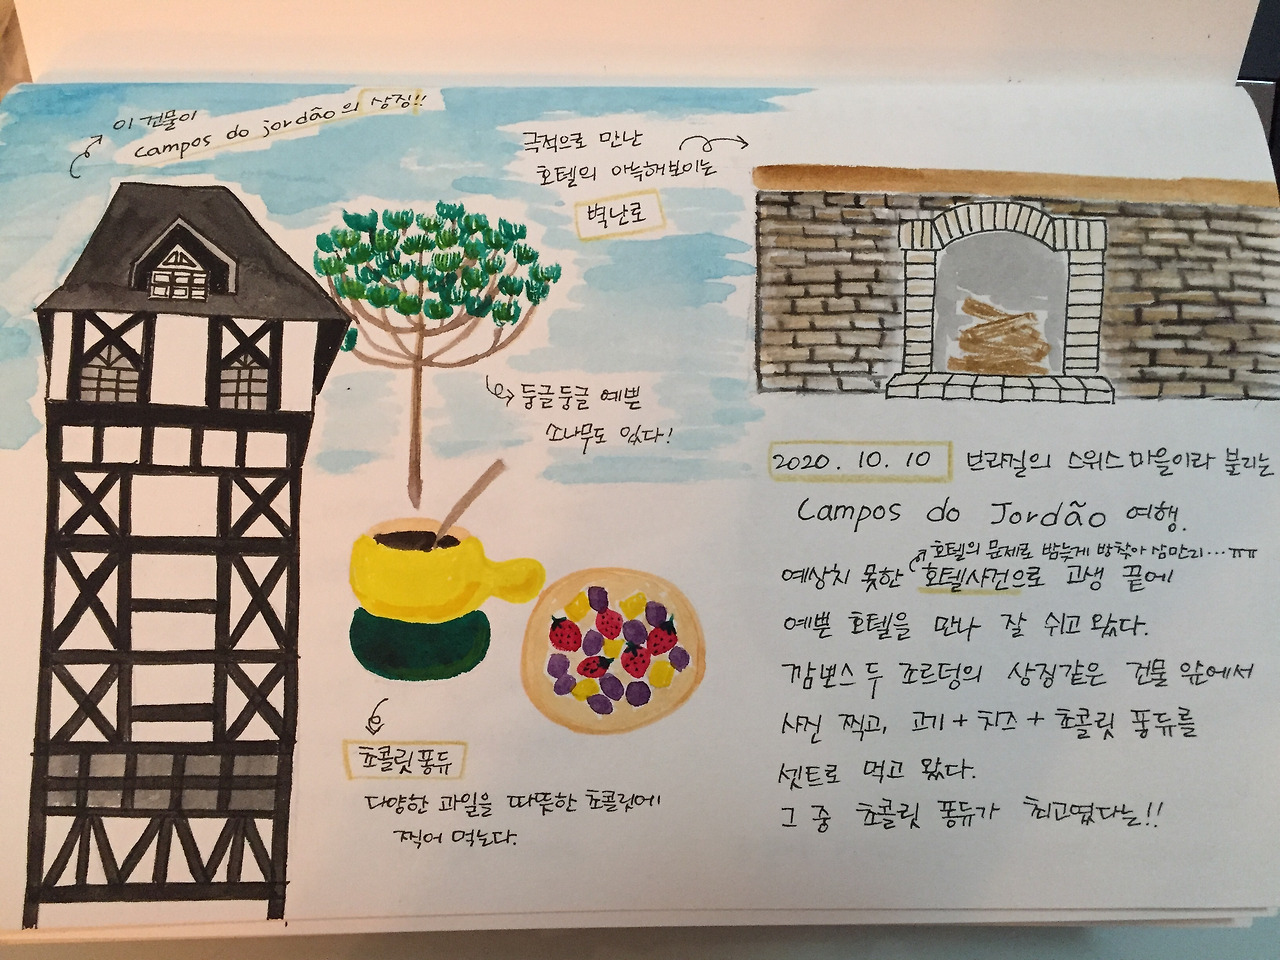 이 건물이
Campos do jordão의 상징!!
극적으로 만난
호텔의 아늑해보이는
벽난로
둥글둥글 예쁜
소나무도 있다!
초콜릿 퐁듀
다양한 과일을 따뜻한 초콜릿에
찍어 먹는다.
2020. 10. 10 브라질의 스위스 마을이라 불리는
Campos do Jordão 여행.
호텔의 문제로 밤늦게 방찾아 삼만리...ㅠㅠ
예상치 못한 호텔사건으로 고생 끝에
예쁜 호텔을 만나 잘 쉬고 왔다.
깜뽀스 두 죠르덩의 상징같은 건물 앞에서
사진 찍고, 고기+치즈+초콜릿 퐁듀를
셋트로 먹고 왔다.
그 중 초콜릿 퐁듀가 최고였다는!!